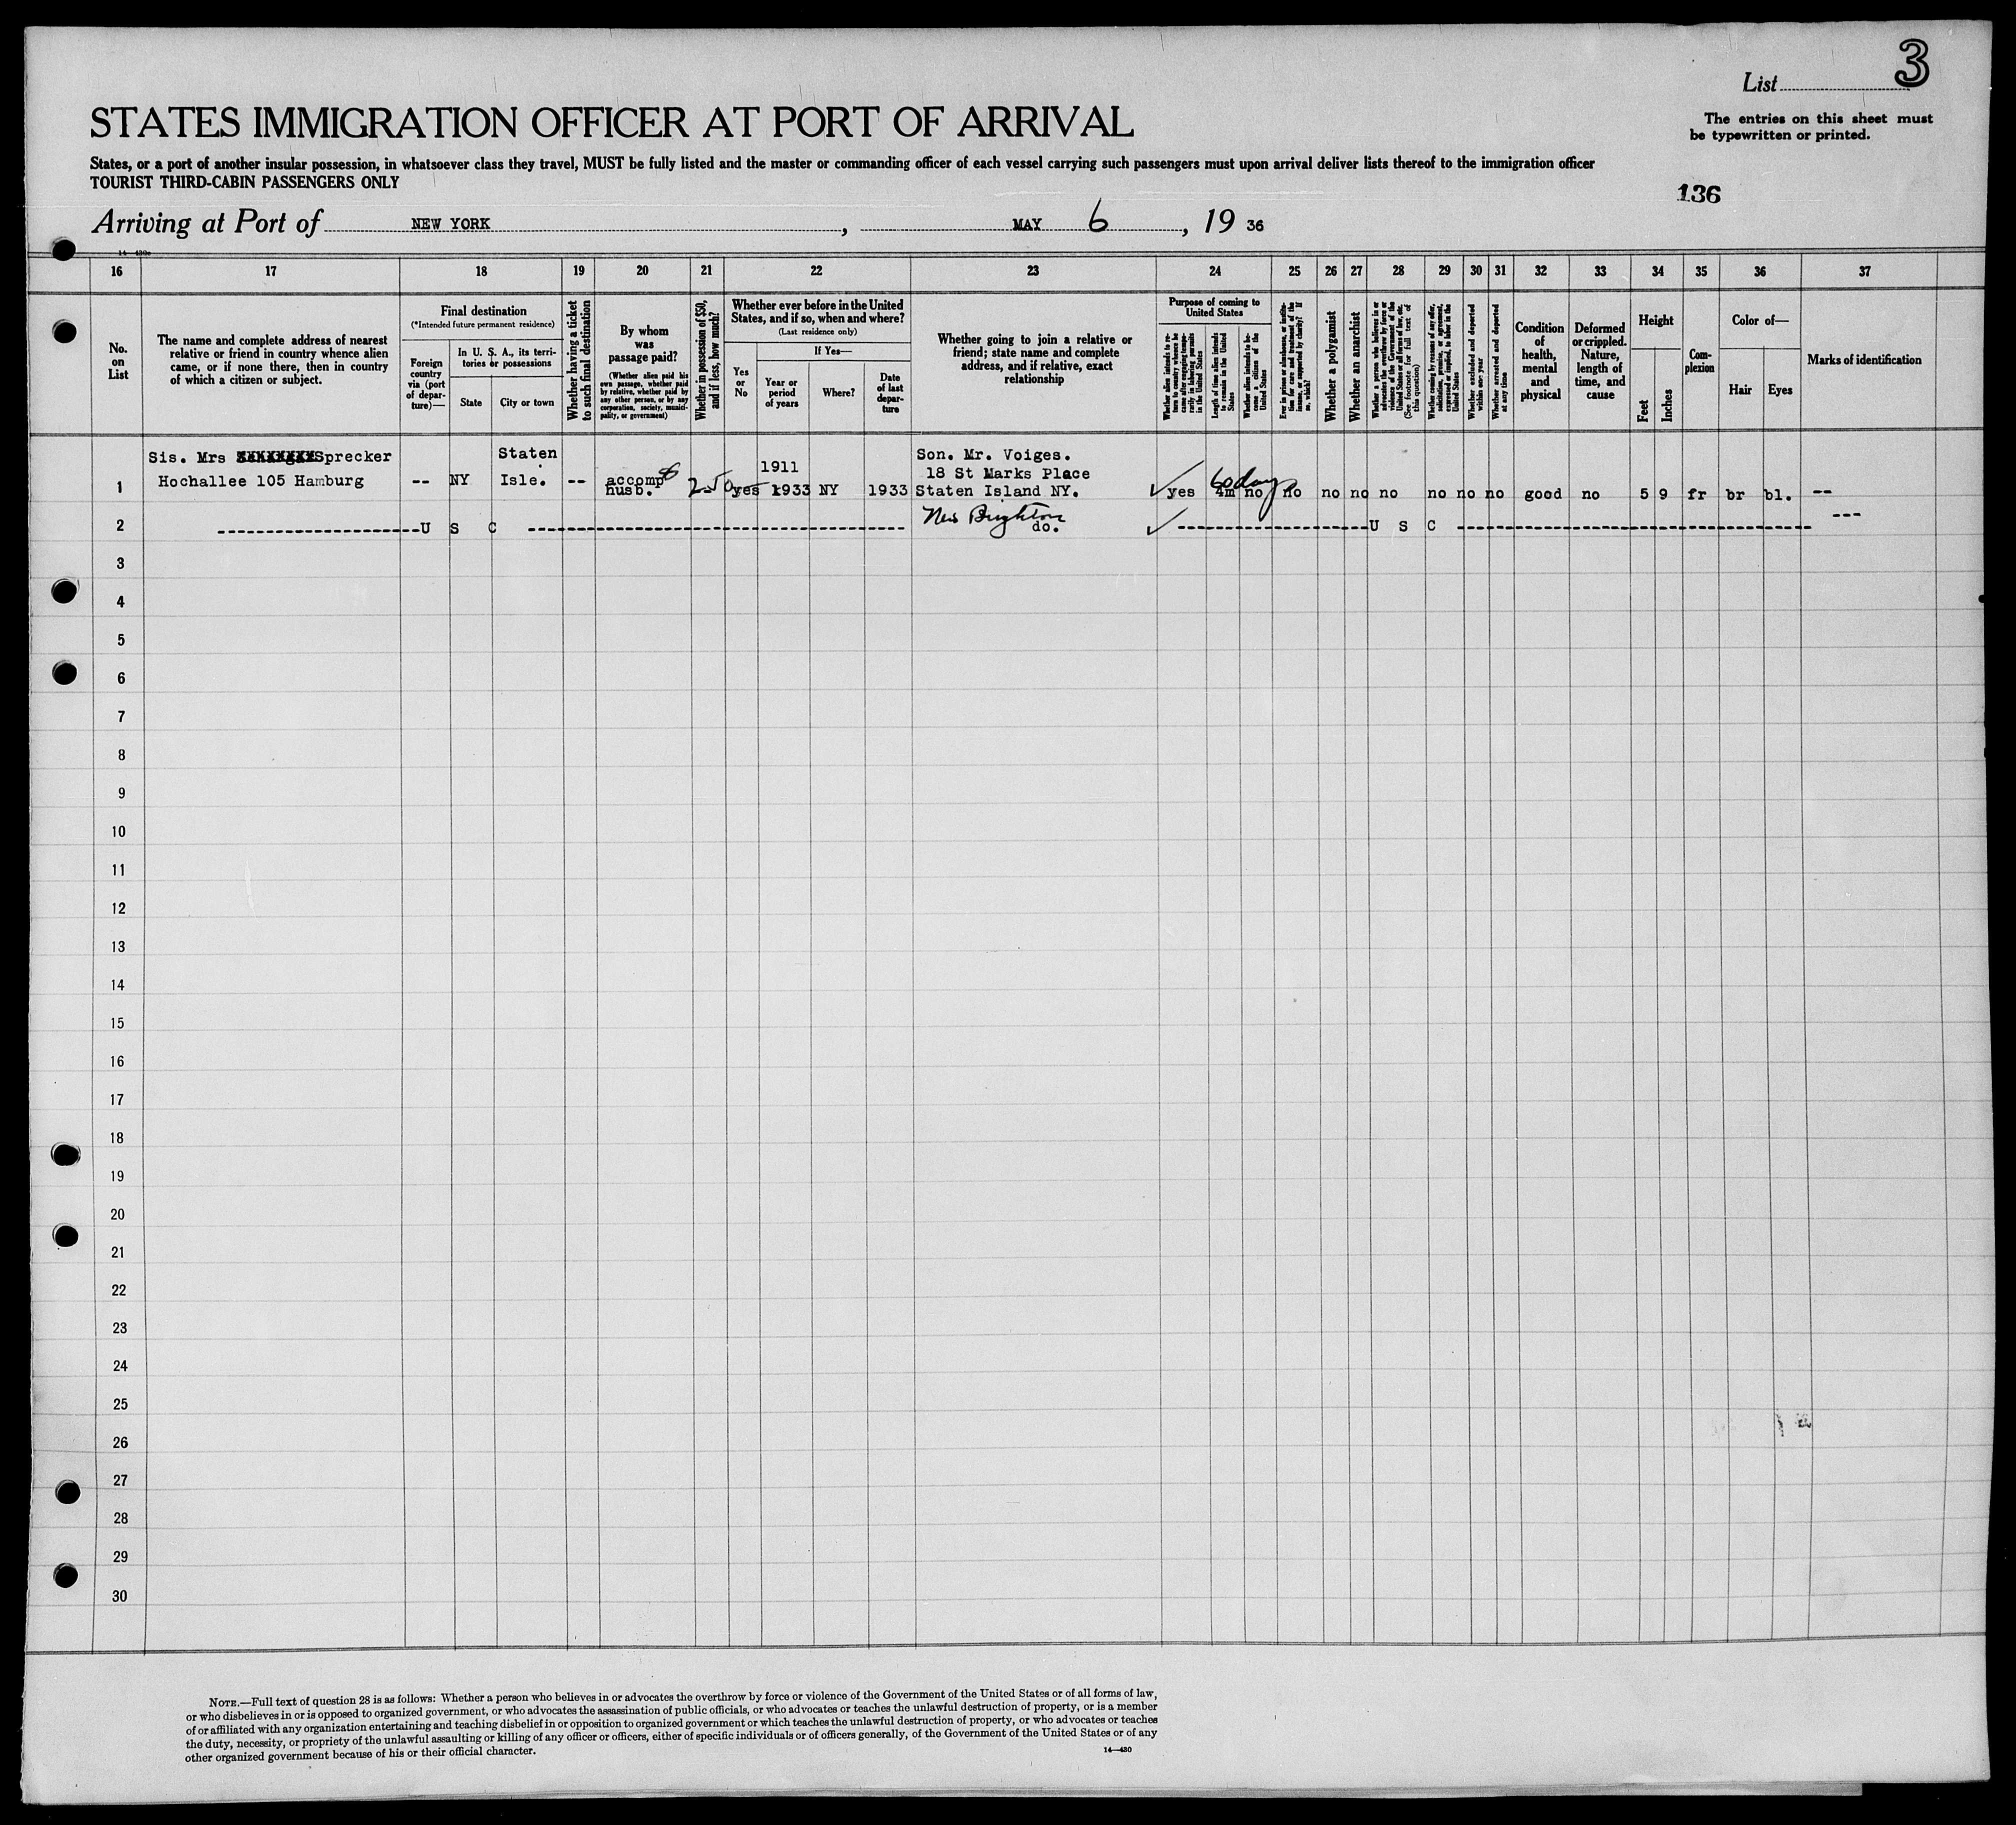 List 3
STATES IMMIGRATION OFFICER AT PORT OF ARRIVAL
The entries on this sheet must
be typewritten or printed.
States, or a port of another insular possession, in whatsoever class they travel, MUST be fully listed and the master or commanding officer of each vessel carrying such passengers must upon arrival deliver lists thereof to the immigration officer
TOURIST THIRD-CABIN PASSENGERS ONLY
136
Arriving at Port of NEW YORK, MAY 6, 19 36
14—430c
16 17 18 19 20 21 22 23 24 25 26 27 28 29 30 31 32 33 34 35 36 37
No.
on
List
The name and complete address of nearest
relative or friend in country whence alien
came, or if none there, then in country
of which a citizen or subject.
Final destination
(*Intended future permanent residence)
Foreign
country
via (port
of depar-
ture)—
In U. S. A., its terri-
tories or possessions
State
City or town
Whether having a ticket
to such final destination
By whom
was
passage paid?
(Whether alien paid his
own passage, whether paid
by relative, whether paid by
any other person, or by any
corporation, society, munici-
pality, or government)
Whether in possession of $50,
and if less, how much?
Whether ever before in the United
States, and if so, when and where?
(Last residence only)
Yes
or
No
If Yes—
Year or
period
of years
Where?
Date
of last
depar-
ture
Whether going to join a relative or
friend; state name and complete
address, and if relative, exact
relationship
Purpose of coming to
United States
Whether alien intends to re-
turn to country whence he
came after engaging tempo-
rarily in laboring pursuits
in the United States
Length of time alien intends
to remain in the United
States
Whether alien intends to be-
come a citizen of the
United States
Ever in prison or almshouse, or institu-
tion for care and treatment of the
insane, or supported by charity? If
so, which?
Whether a polygamist
Whether an anarchist
Whether a person who believes in or
advocates the overthrow by force or
violence of the Government of the
United States or all forms of law, etc.
(See footnote for full text of
this question)
Whether coming by reason of any offer,
solicitation, promise, or agreement,
expressed or implied, to labor in the
United States
Whether excluded and deported
within one year
Whether arrested and deported
at any time
Condition
of
health,
mental
and
physical
Deformed
or crippled.
Nature,
length of
time, and
cause
Height
Feet
Inches
Com-
plexion
Color of—
Hair
Eyes
Marks of identification
Sis. Mrs Sprecker Staten Son. Mr. Voiges.
Hochallee 105 Hamburg -- NY Isle. -- accomp 1911 18 St Marks Place
1 husb. 250 yes 1933 NY 1933 Staten Island NY. yes 4m 60 days no no no no no no no no good no 5 9 fr br bl. --
New Brighton
2 U S C do. U S C ---
3
4
5
6
7
8
9
10
11
12
13
14
15
16
17
18
19
20
21
22
23
24
25
26
27
28
29
30
NOTE.—Full text of question 28 is as follows: Whether a person who believes in or advocates the overthrow by force or violence of the Government of the United States or of all forms of law,
or who disbelieves in or is opposed to organized government, or who advocates the assassination of public officials, or who advocates or teaches the unlawful destruction of property, or is a member
of or affiliated with any organization entertaining and teaching disbelief in or opposition to organized government or which teaches the unlawful destruction of property, or who advocates or teaches
the duty, necessity, or propriety of the unlawful assaulting or killing of any officer or officers, either of specific individuals or of officers generally, of the Government of the United States or of any
other organized government because of his or their official character.
14—430